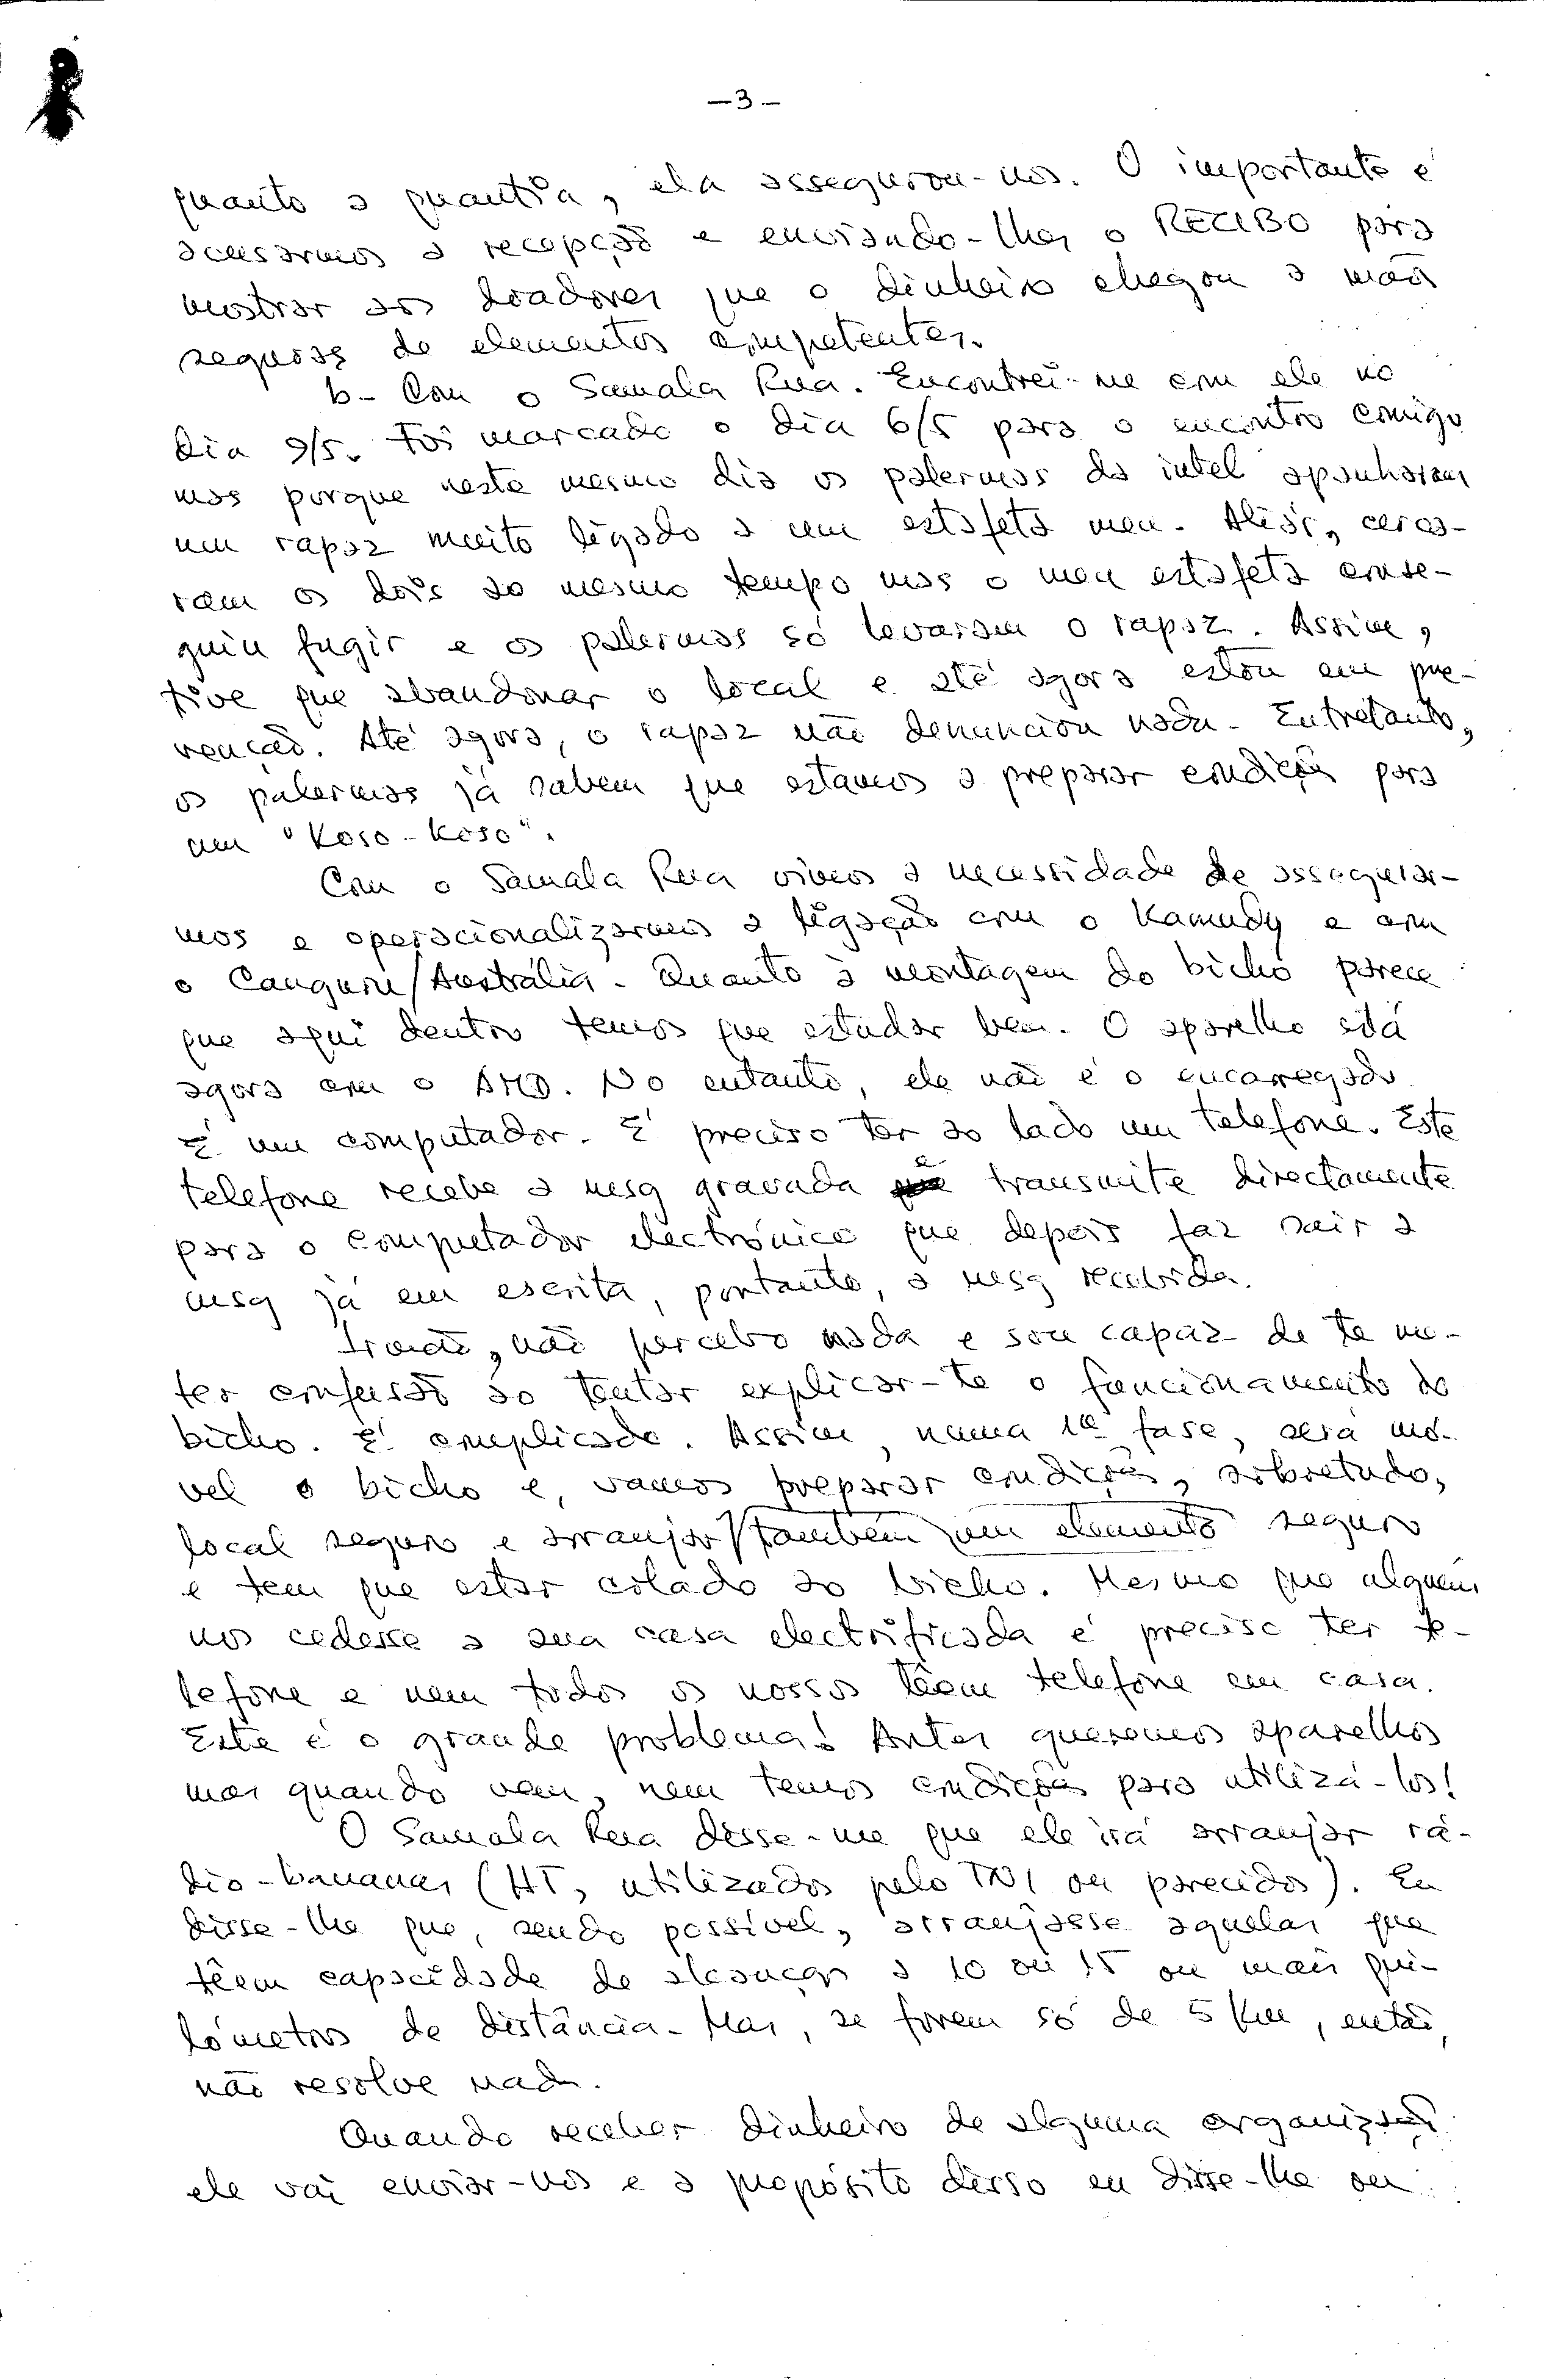 —3—
quanto a quantia, ela assegurou-nos. O importante é
acusarmos a recepção e enviando-lhes o RECIBO para
mostrar aos doadores que o dinheiro chegou a mãos
seguras de elementos competentes.
b- Com o Samala Rua. Encontrei-me com ele no
dia 9/5. Foi marcado o dia 6/5 para o encontro comigo
mas porque neste mesmo dia os palermas da intel apanharam
um rapaz muito ligado a um estafeta meu. Aliás, cerca-
ram os dois ao mesmo tempo mas o meu estafeta conse-
guiu fugir e os palermas só levaram o rapaz. Assim,
tive que abandonar o local e até agora estou em pre-
venção. Até agora, o rapaz não denunciou nada. Entretanto,
os palermas já sabem que estamos a preparar condições para
um "Koso-Koso".
Com o Samala Rua vimos a necessidade de assegurar-
mos e operacionalizarmos a ligação com o Kamudy e com
o Canguru/Austrália. Quanto à montagem do bicho parece
que aqui dentro temos que estudar bem. O aparelho está
agora com o AMD. No entanto, ele não é o encarregado
É um computador. É preciso ter ao lado um telefone. Este
telefone recebe a mesg gravada e transmite directamente
para o computador electrónico que depois faz sair a
mesg já em escrita, portanto, a mesg recebida.
Irmão, não percebo nada e sou capaz de te me-
ter confusão ao tentar explicar-te o funcionamento do
bicho. É complicado. Assim, numa 1ª fase, será mó-
vel o bicho e, vamos preparar condições, sobretudo,
local seguro e arranjar/também um elemento seguro
e tem que estar colado ao bicho. Mesmo que alguém
nos cedesse a sua casa electrificada é preciso ter te-
lefone e nem todos os nossos têem telefone em casa.
Este é o grande problema! Antes queremos aparelhos
mas quando vem, nem temos condições para utilizá-los!
O Samala Rua disse-me que ele irá arranjar rá-
dio-bananas (HT, utilizados pelo TNI ou parecidos). Eu
disse-lhe que, sendo possível, arranjasse aquelas que
têem capacidade de alcançar a 10 ou 15 ou mais qui-
lómetros de distância. Mas, se forem só de 5 km, então,
não resolve nada.
Quando receber dinheiro de alguma organização
ele vai enviar-nos e a propósito disso eu disse-lhe ou